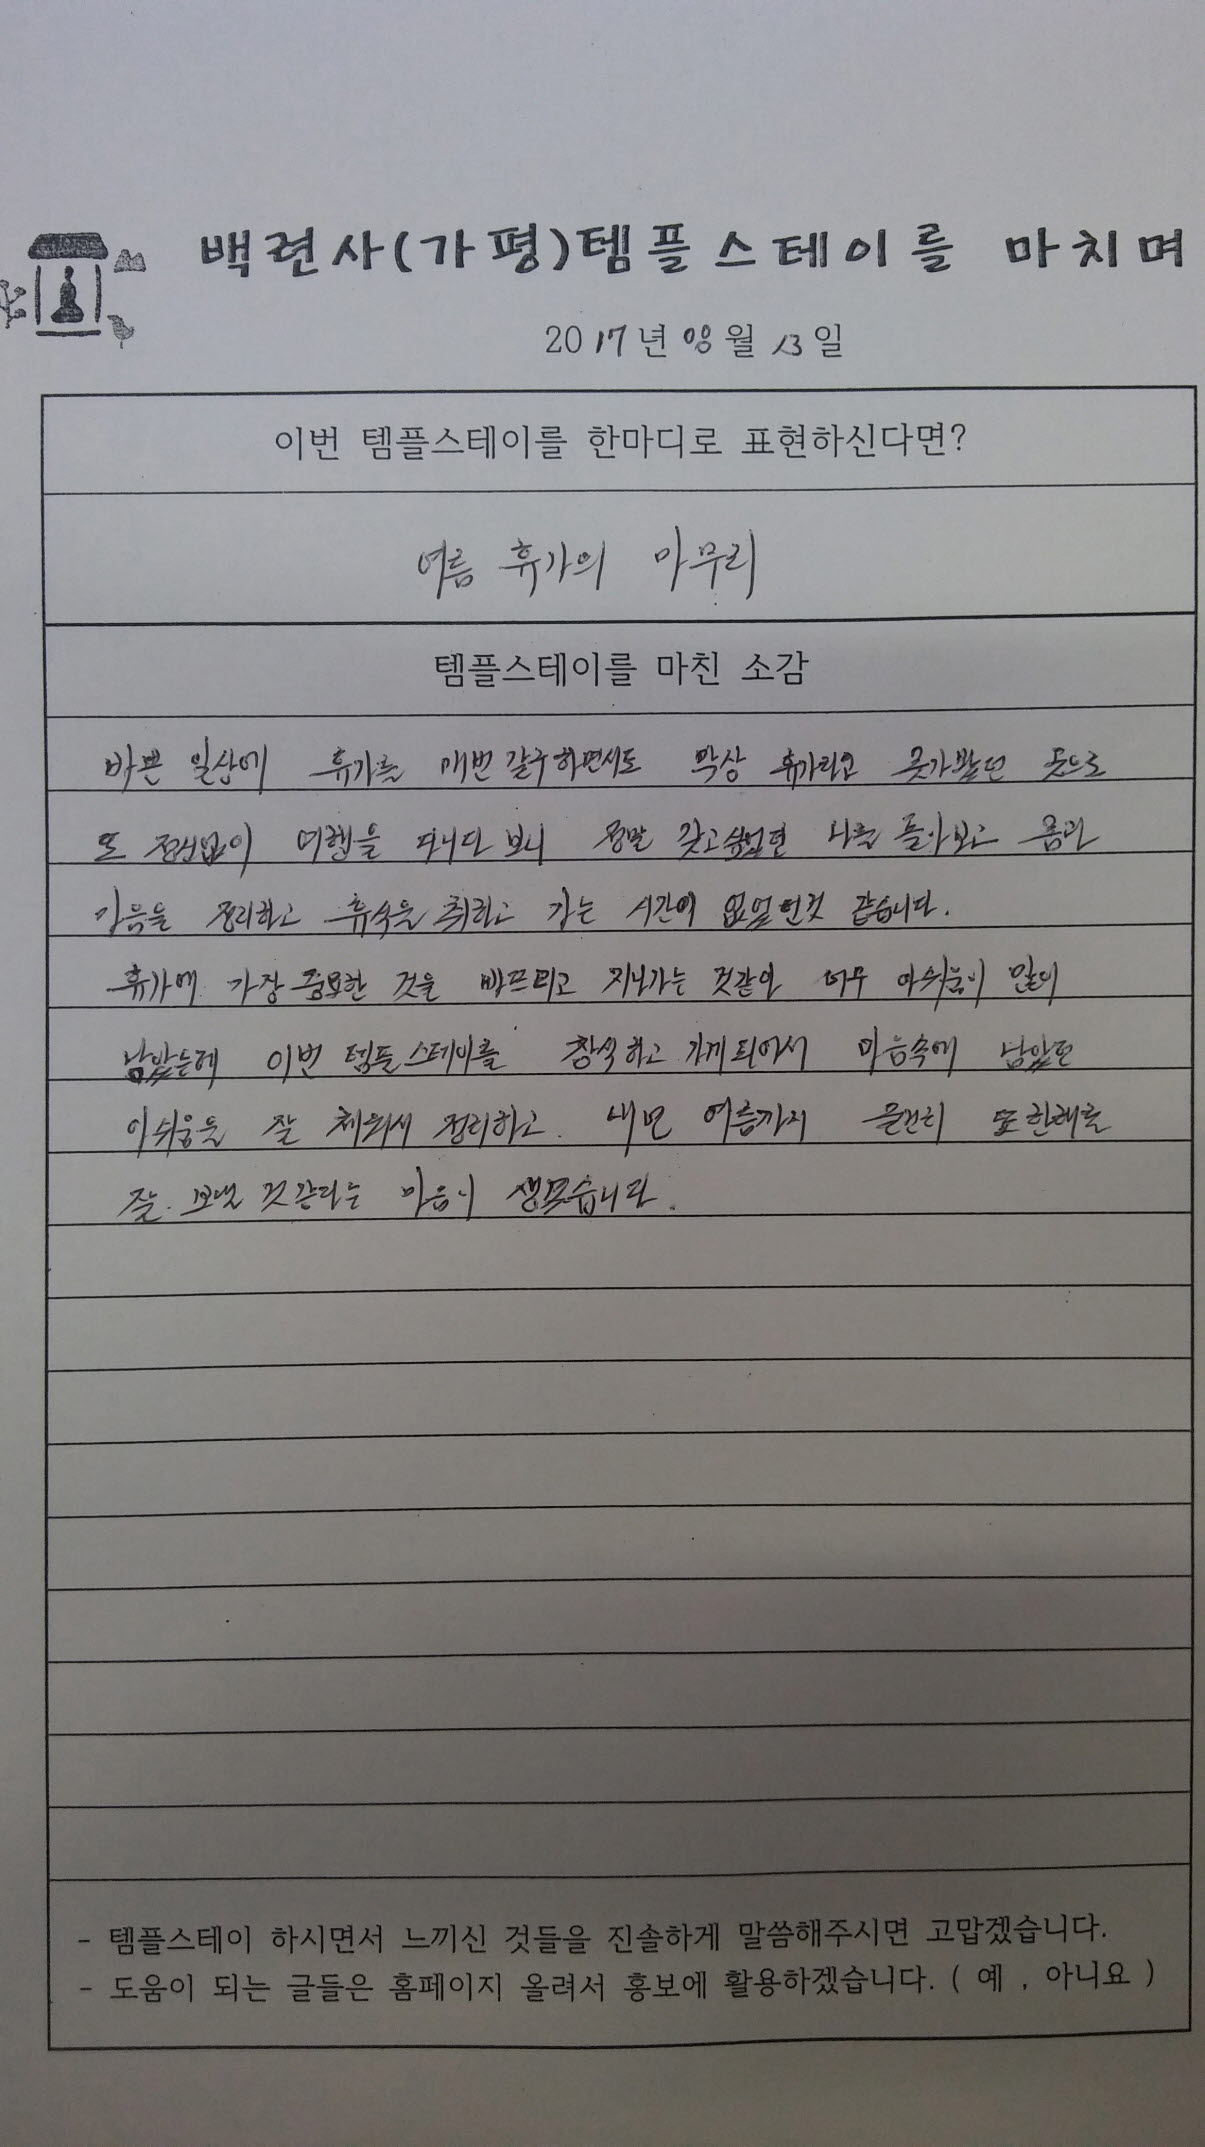 백련사(가평)템플스테이를 마치며
2017년 08월 13일
이번 템플스테이를 한마디로 표현하신다면?
여름 휴가의 마무리
템플스테이를 마친 소감
바쁜 일상에 휴가를 매번 갈구하면서도 막상 휴가라고 곳으로
또 정신없이 여행을 다니다 보니 정말 갖고싶었던 나를 돌아보고 몸과
마음을 정리하고 휴식을 취하고 가는 시간이 없었던것 같습니다.
휴가에 가장 중요한 것을 빠뜨리고 지나가는 것같아 너무 아쉬움이 많이
남았는데 이번 템플스테이를 참석하고 가게되어서 마음속에 남았던
아쉬움을 잘 채워서 정리하고 내년 여름까지 든든히 또한해를
잘 보낼 것 같다는 마음이 생깁니다.
- 템플스테이 하시면서 느끼신 것들을 진솔하게 말씀해주시면 고맙겠습니다.
- 도움이 되는 글들은 홈페이지 올려서 홍보에 활용하겠습니다. ( 예 , 아니요 )